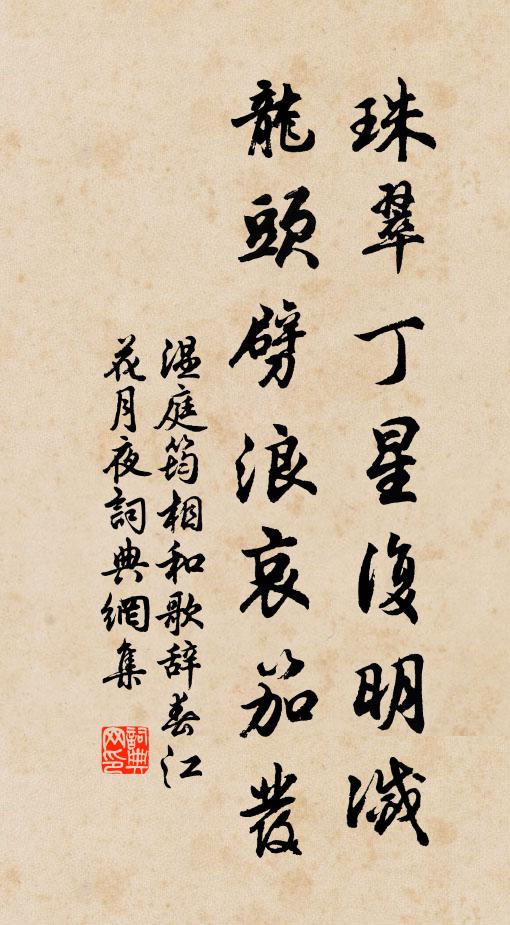 珠翠丁星復明滅
龍頭劈浪哀笳發
溫庭筠相和歌辭春江
花月夜詞典網集
詞典网印